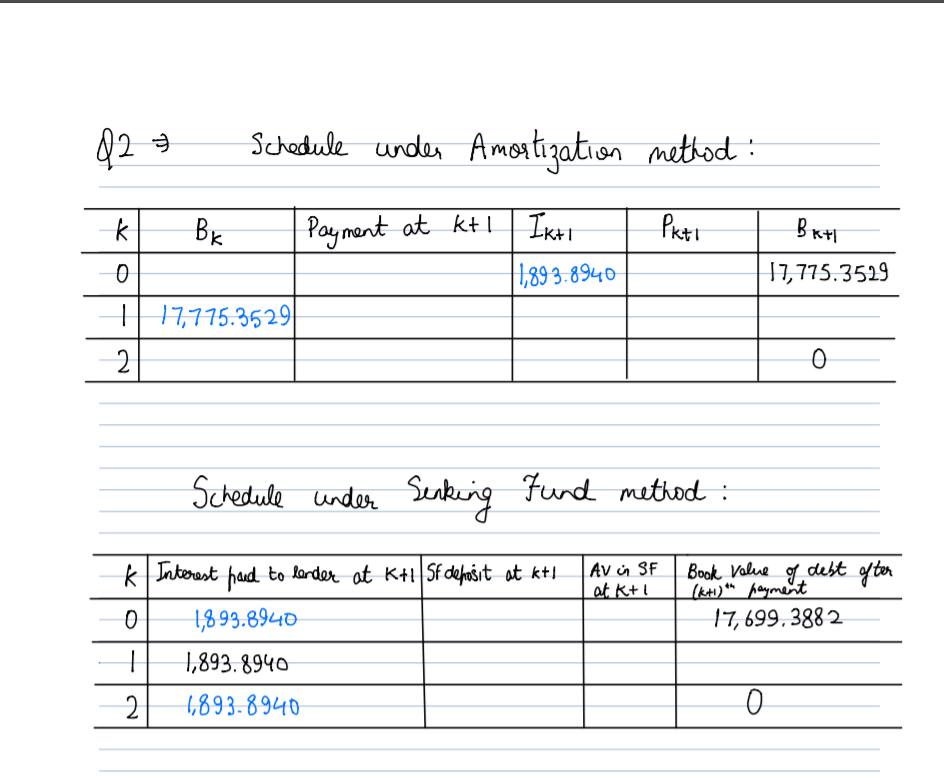 Q2 ⇒ Schedule under Amortization method :
k Bk Payment at k+1 Ik+1 Pk+1 Bk+1
0 1,893.8940 17,775.3529
1 17,775.3529
2 0
Schedule under Senking Fund method :
k Interest paid to lender at K+1 Sf deposit at k+1 AV in SF at K+1 Book value of debt after (k+1)th payment
0 1,893.8940 17,699.3882
1 1,893.8940
2 1,893.8940 0